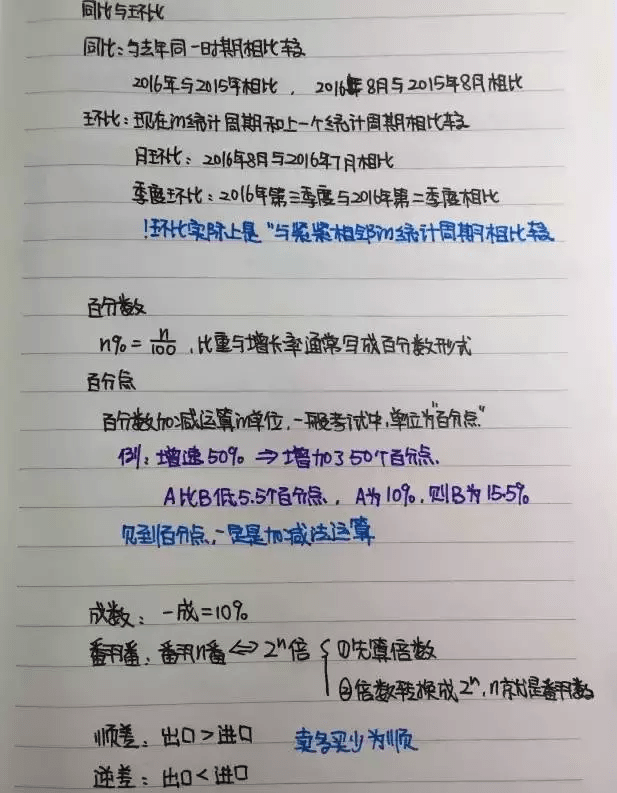 同比与环比
同比：与去年同一时期相比较
2016年与2015年相比，2016年8月与2015年8月相比
环比：现在的统计周期和上一个统计周期相比较
月环比：2016年8月与2016年7月相比
季度环比：2016年第三季度与2016年第二季度相比
！环比实际上是“与紧紧相邻的统计周期相比较
百分数
n%=n/100，比重与增长率通常写成百分数形式
百分点
百分数加减运算的单位，一般考试中，单位为“百分点”
例：增速50% ⇒ 增加了50个百分点.
A比B低5.5个百分点，A为10%，则B为15.5%
见到百分点，一定是加减法运算
成数：一成=10%
翻番：翻n番⇔2ⁿ倍 { ①先算倍数
②倍数转换成2ⁿ，n就是翻番数
顺差：出口>进口 卖多买少为顺
逆差：出口<进口